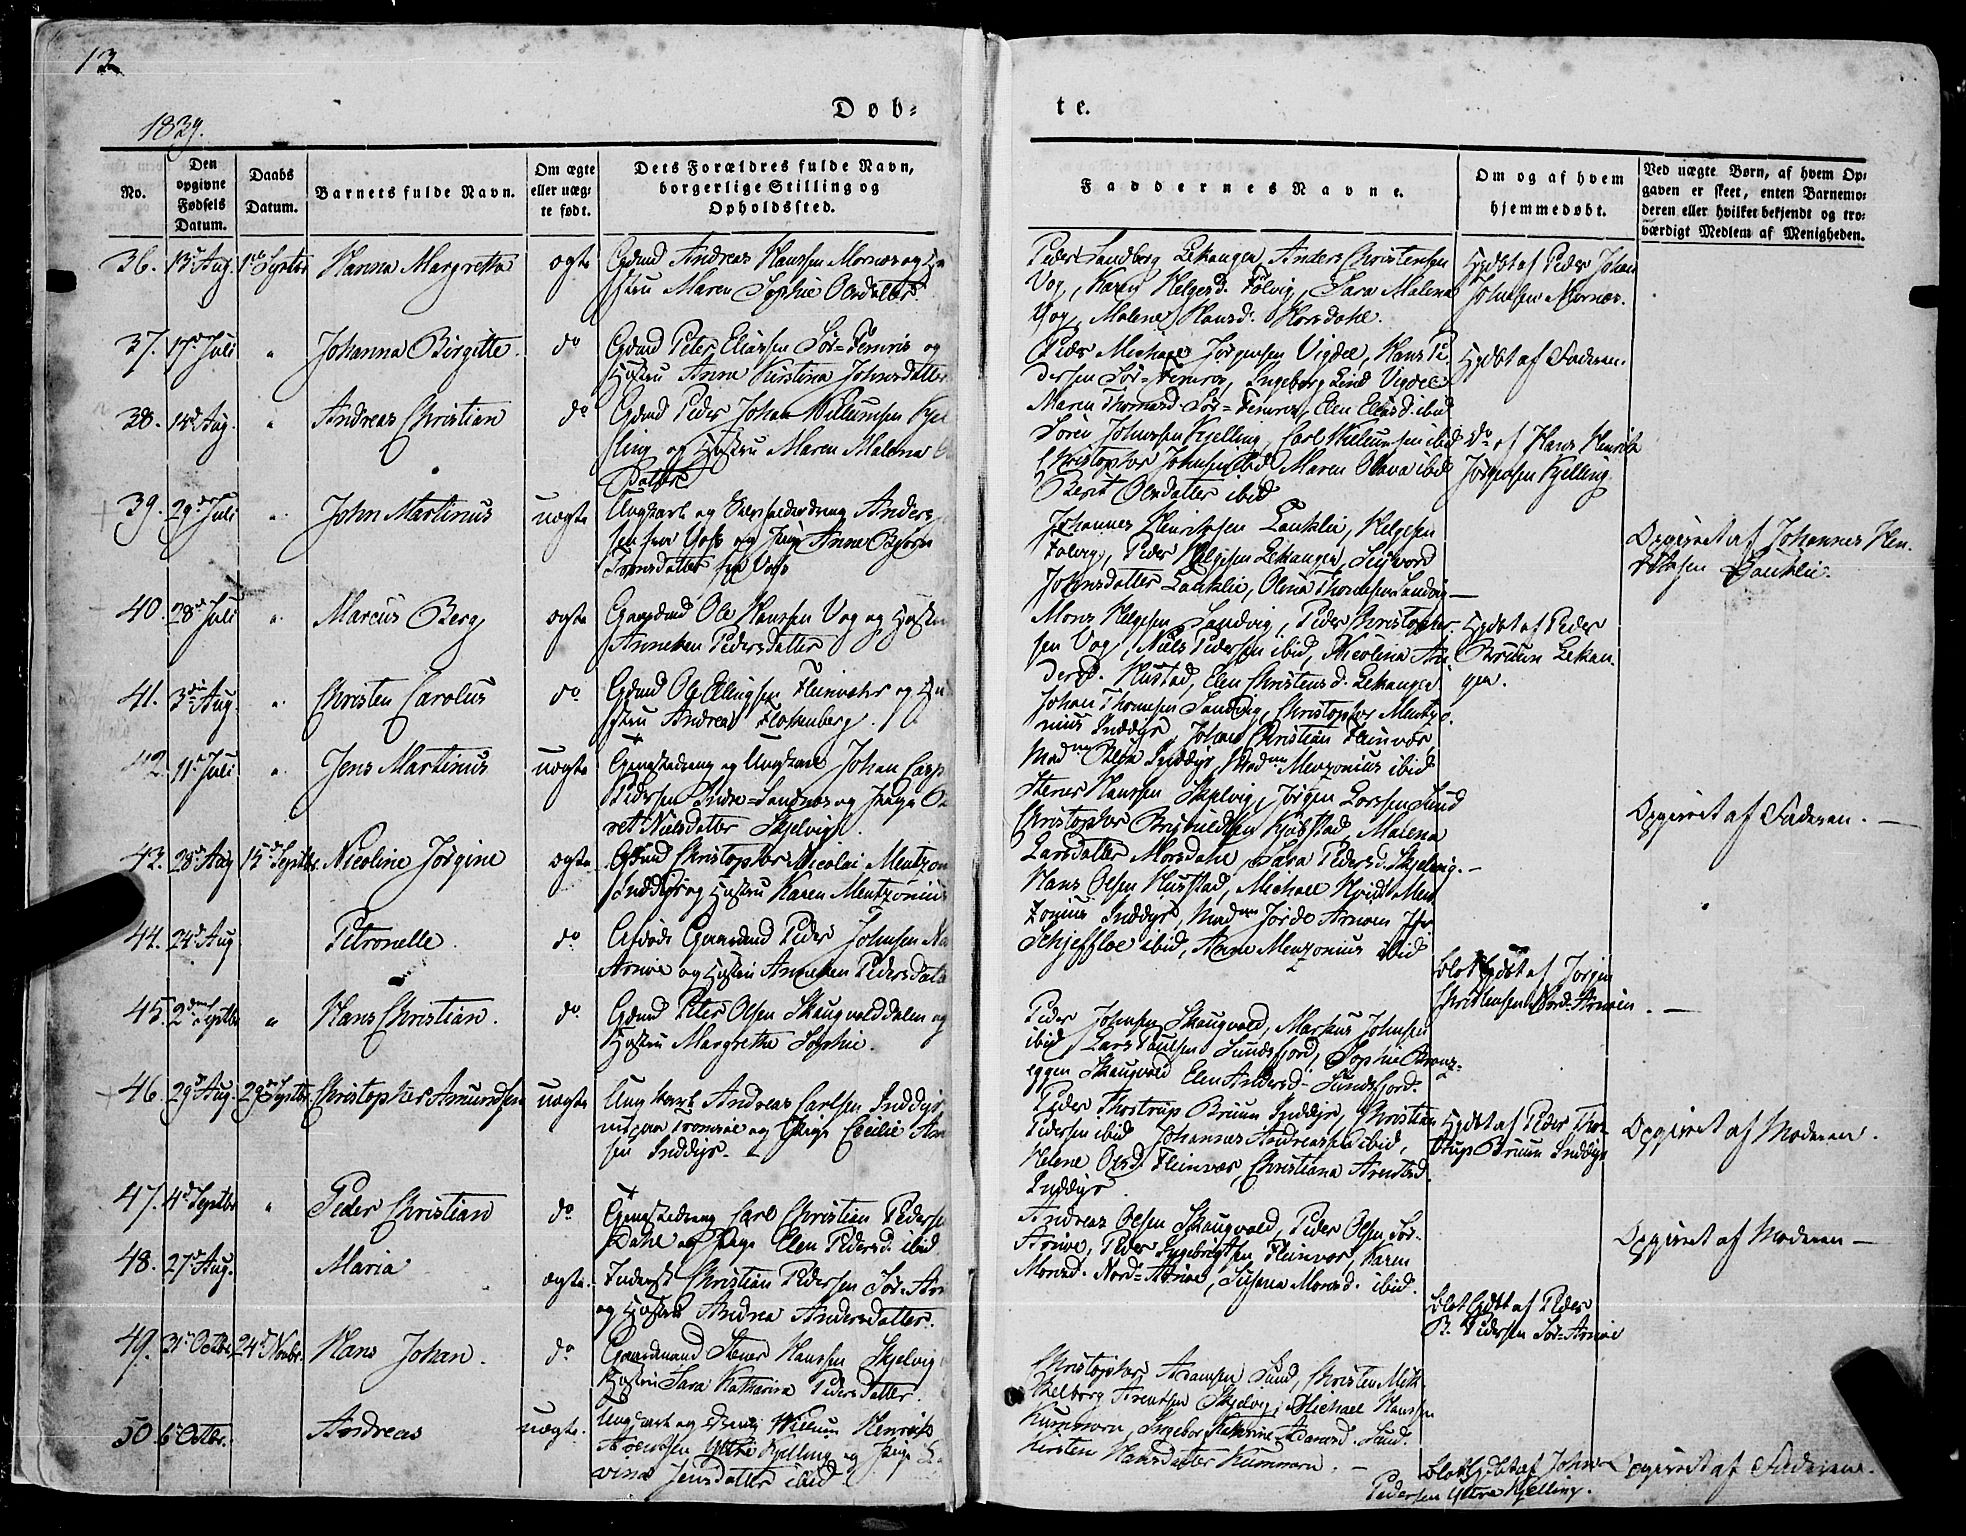 13
1839.
Døb-
te.
No.
Den opgivne Fødsels Datum.
Daabs Datum.
Barnets fulde Navn.
Om ægte eller uæg- te født.
Dets Forældres fulde Navn, borgerlige Stilling og Opholdssted.
Faddernes Navne.
Om og af hvem hjemmedøbt.
Ved uægte Børn, af hvem Op- gaven er skeet, enten Barnemo- deren eller hvilket bekjendt og tro- værdigt Medlem af Menigheden.
36. 13 Aug. 1ste Septbr Hanna Margretha ægte
Gdmd Andreas Hanssen Mornæs og
Maren Sophie Olsdatter
Peder Sandberg Lekanger, Anders Christensen
Vog, Karen Helgesd. Følvig, Sara Malena
Vog, Malene Hansd. Horsdahl.
Hjdbt af Peder Johan
Johnsen Mornæs.
37. 17 Juli " Johanna Birgitte. do
Gdmd Peter Eliassen Sør-Femris og
Hustru Anne Kirstina Johnsdatter
Peder Michael Jørgensen Vigdel, Hans Pe-
dersen Sør-Femris, Ingeborg Lind Vigdel
Maren Thomasd. Sør-Femris, Elen Eliasd. ibid
Hjdbt af Faderen.
38. 14 Aug. " Andreas Christian do
Gdmd Peder Johan Willumsen Kjel-
ling og Hustru Maren Malena
Søren Johnsen Kjelling, Carl Willumsen ibid
Christopher Johnsen ibid Maren Olava ibid
Berit Olsdatter ibid
Do af Hans Henrik
Jørgensen Kjelling.
39. 29 Juli " John Martinus uægte
Ungkarl og Anders
sen fra Vog og Pige Anne Bjørn
datter fra Vog
Johannes Henriksen Laukli, Helgesen
Følvig, Peder Helgesen Lekanger, Sigvord
Johnsdatter Laukli, Olena Thomesen Sandvig
Opgivet af Johannes Hen-
riksen Laukli.
40. 28 Juli " Marcus Berg ægte
Gaardmd Ole Hanssen Vog og Hustru
Anneken Pedersdatter
Mons Helgesen Sandvig, Peder Christopher-
sen Vog, Niels Pedersen ibid, Nicolina An-
dersd. Hustad, Elen Christensd. Lekanger
Hjdbt af Peder
Bruun Lekan-
ger.
41. 3 Aug. " Christen Carolus do
Gdmd Ole Ellingsen Fleinvær og Hu-
stru Andrea Flohenberg.
Johan Thomesen Sandvig, Christopher Mentzo-
nius Inddyr, Johan Christian Fleinvær
Inddyr, Mentzonius ibid
42. 11 Juli " Jens Martinus uægte
og Ungkarl Johan Casp
Pedersen Indre-Sandnæs og Pige
Nielsdatter Skjelvig.
Stener Hanssen Skjelvig, Jørgen Larssen Sund
Christopher Kjøbstad, Malena
Larsdatter Morsdahl, Sara Pedersd. Skjelvig.
Opgivet af Faderen.
43. 28 Aug 15 Septbr Nicoline Jørgine ægte
Gdmd Christopher Nicolai Mentzon
Inddyr og Hustru Karen Mentzonius
Hans Olsen Hustad, Michael Hvidt Ment-
zonius Inddyr, Mad Jorde Arnøen
Schjefloe ibid, Anne Mentzonius ibid
44. 24 Aug Petronelle. do
Gaardmd Peder Johnsen
Arnøe og Hustru Anneken Pedersdatter
Blot hjdbt af Jørgen
Christensen Nord-Arnøen.
45. 2den Septbr " Hans Christian. do
Gdmd Peter Olsen Skaugvolddalen og
Hustru Margrethe Sophie.
Peder Johnsen Skaugvold, Markus Johnsen
ibid, Lars Paulsen Sundsfjord, Sophie
eggen Skaugvold Elen Andersd. Sundsfjord.
46. 29 Aug. 29 Septbr. Christopher Amundsen uægte
Ungkarl Andreas Carlsen Inddyr
Tromsøe og Pige Cecilie
sen Inddyr.
Peder Thostrup Bruun Inddyr, Christian
Pedersen ibid Johannes Andreassen ibid,
Helene Olsd. Fleinvær, Christiana Arentsd.
Inddyr.
Hjdbt af Peder Tho-
strup Bruun Inddyr
Opgivet af Moderen.
47. 4 Septbr " Peder Christian do
Carl Christian Pedersen
Dahl og Pige Elen Pedersd. ibid
Andreas Olsen Skaugvold, Peder Olsen Sør-
Arnøe, Peder Ingebrigtsen Fleinvær, Karen
Monsd. Nord-Arnøe, Susana Monsd. ibid.
Opgivet af Moderen
48. 27 Aug. Maria ægte.
Inderst Christian Pedersen Sør-Arn
og Hustru Andrea Andersdatter.
Blot hjdbt af Peder
Pedersen Sør-Arnøe
49. 31 Octbr. 24 Novbr. Hans Johan. do
Gaardmand Stener Hanssen Skjelvig
Hustru Sara Katharina Pedersdatter.
Christopher Adamsen Sund, Christen
Arentsen Skjelvig, Michael Hanssen
Kunmorn, Ingebor Katrine Adamsd. Sund.
Kirsten Hansdatter Kunmorn.
50 6 Octbr. Andreas uægte.
Ungkarl og Willum Henrik
Arentsen Yttre Kjelling og Pige
vina Jensdatter ibid
Blot hjdbt af Johan
Pedersen Yttre Kjelling.
Opgivet af Faderen.